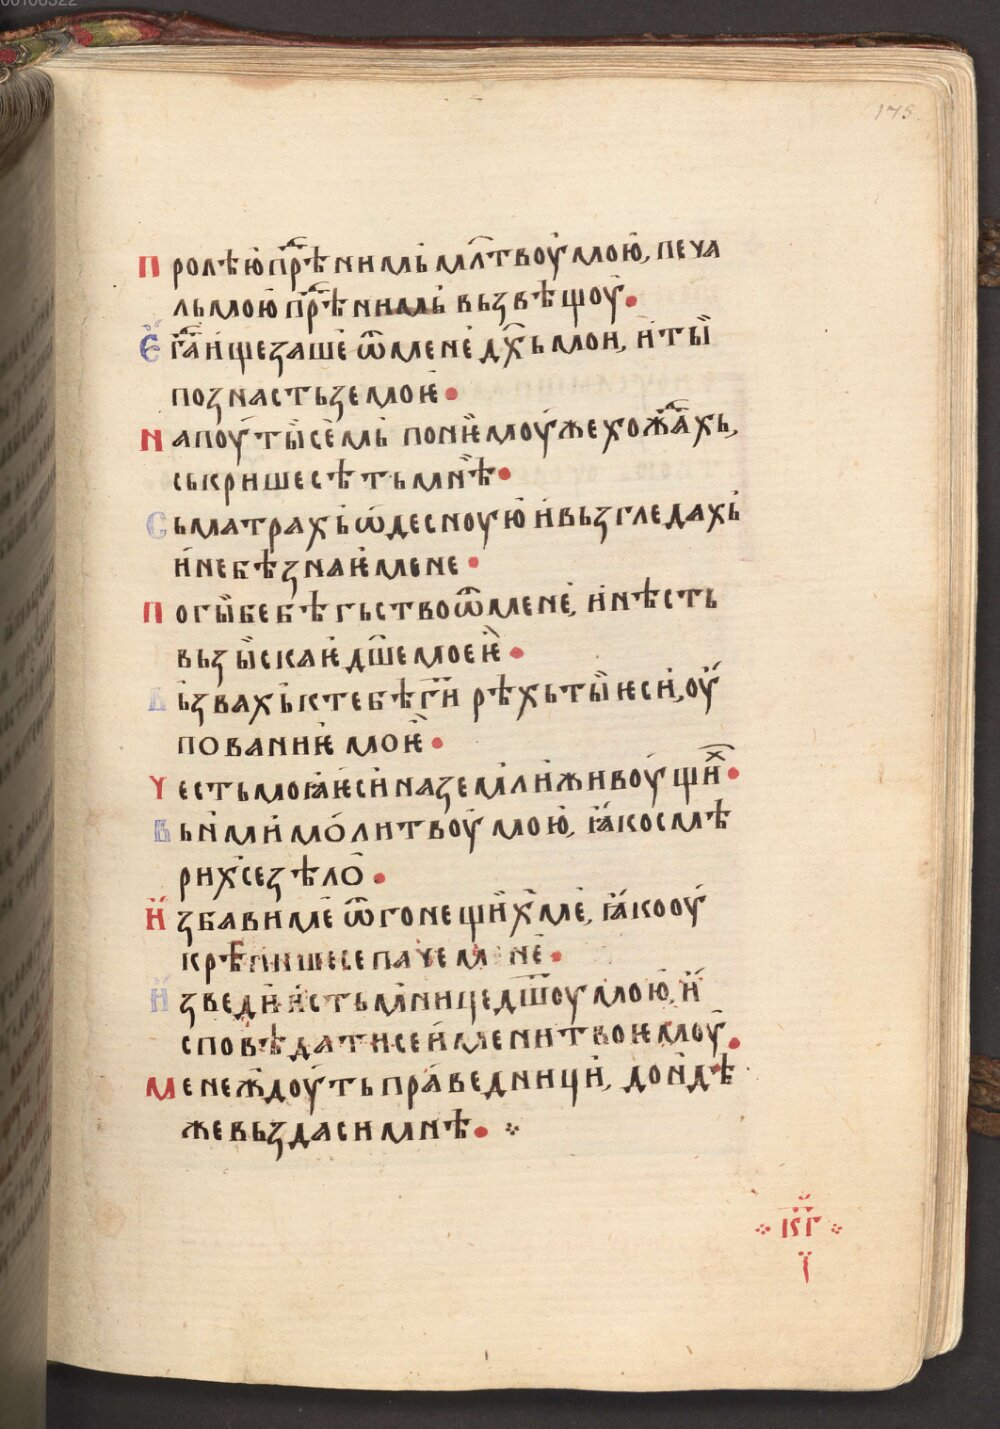 00106322
175
Пролѣю прⷣѣ нимь млт҃воу мою, печа
ль мою прⷣѣ нимь вьзвѣщоу.
Ѥгⷣа ищезаше ѿ мене дх҃ь мои, и ты
позна стьзе моѥ.
На поути семь по нѥмоуже хожⷣахь,
ськрише сѣть мнѣ.
Сьматрахь ѡдесноую и вьзгледахь
и не бѣ знаѥ мене.
Погыбе бѣгьство ѿ мене, и нѣсть
вьзыскаѥ дш҃е моеѥ.
Вьзвахь к тебѣ ги҃ рѣхь ты ѥси, оу
пованиѥ моѥ.
Честь моꙗ ѥси на земли живоущиⷯ.
Вьнми молитвоу мою, ꙗко смѣ
рихсе зѣло.
Избави ме ѿ гонещих ме, ꙗко оу
крѣпише се паче мене.
Изведи ис тьмнице дш҃оу мою, и
споведати се имени твоѥмоу.
Мене ждоуть праведници, дон҄дѣ
же вьздаси мнѣ.
кг